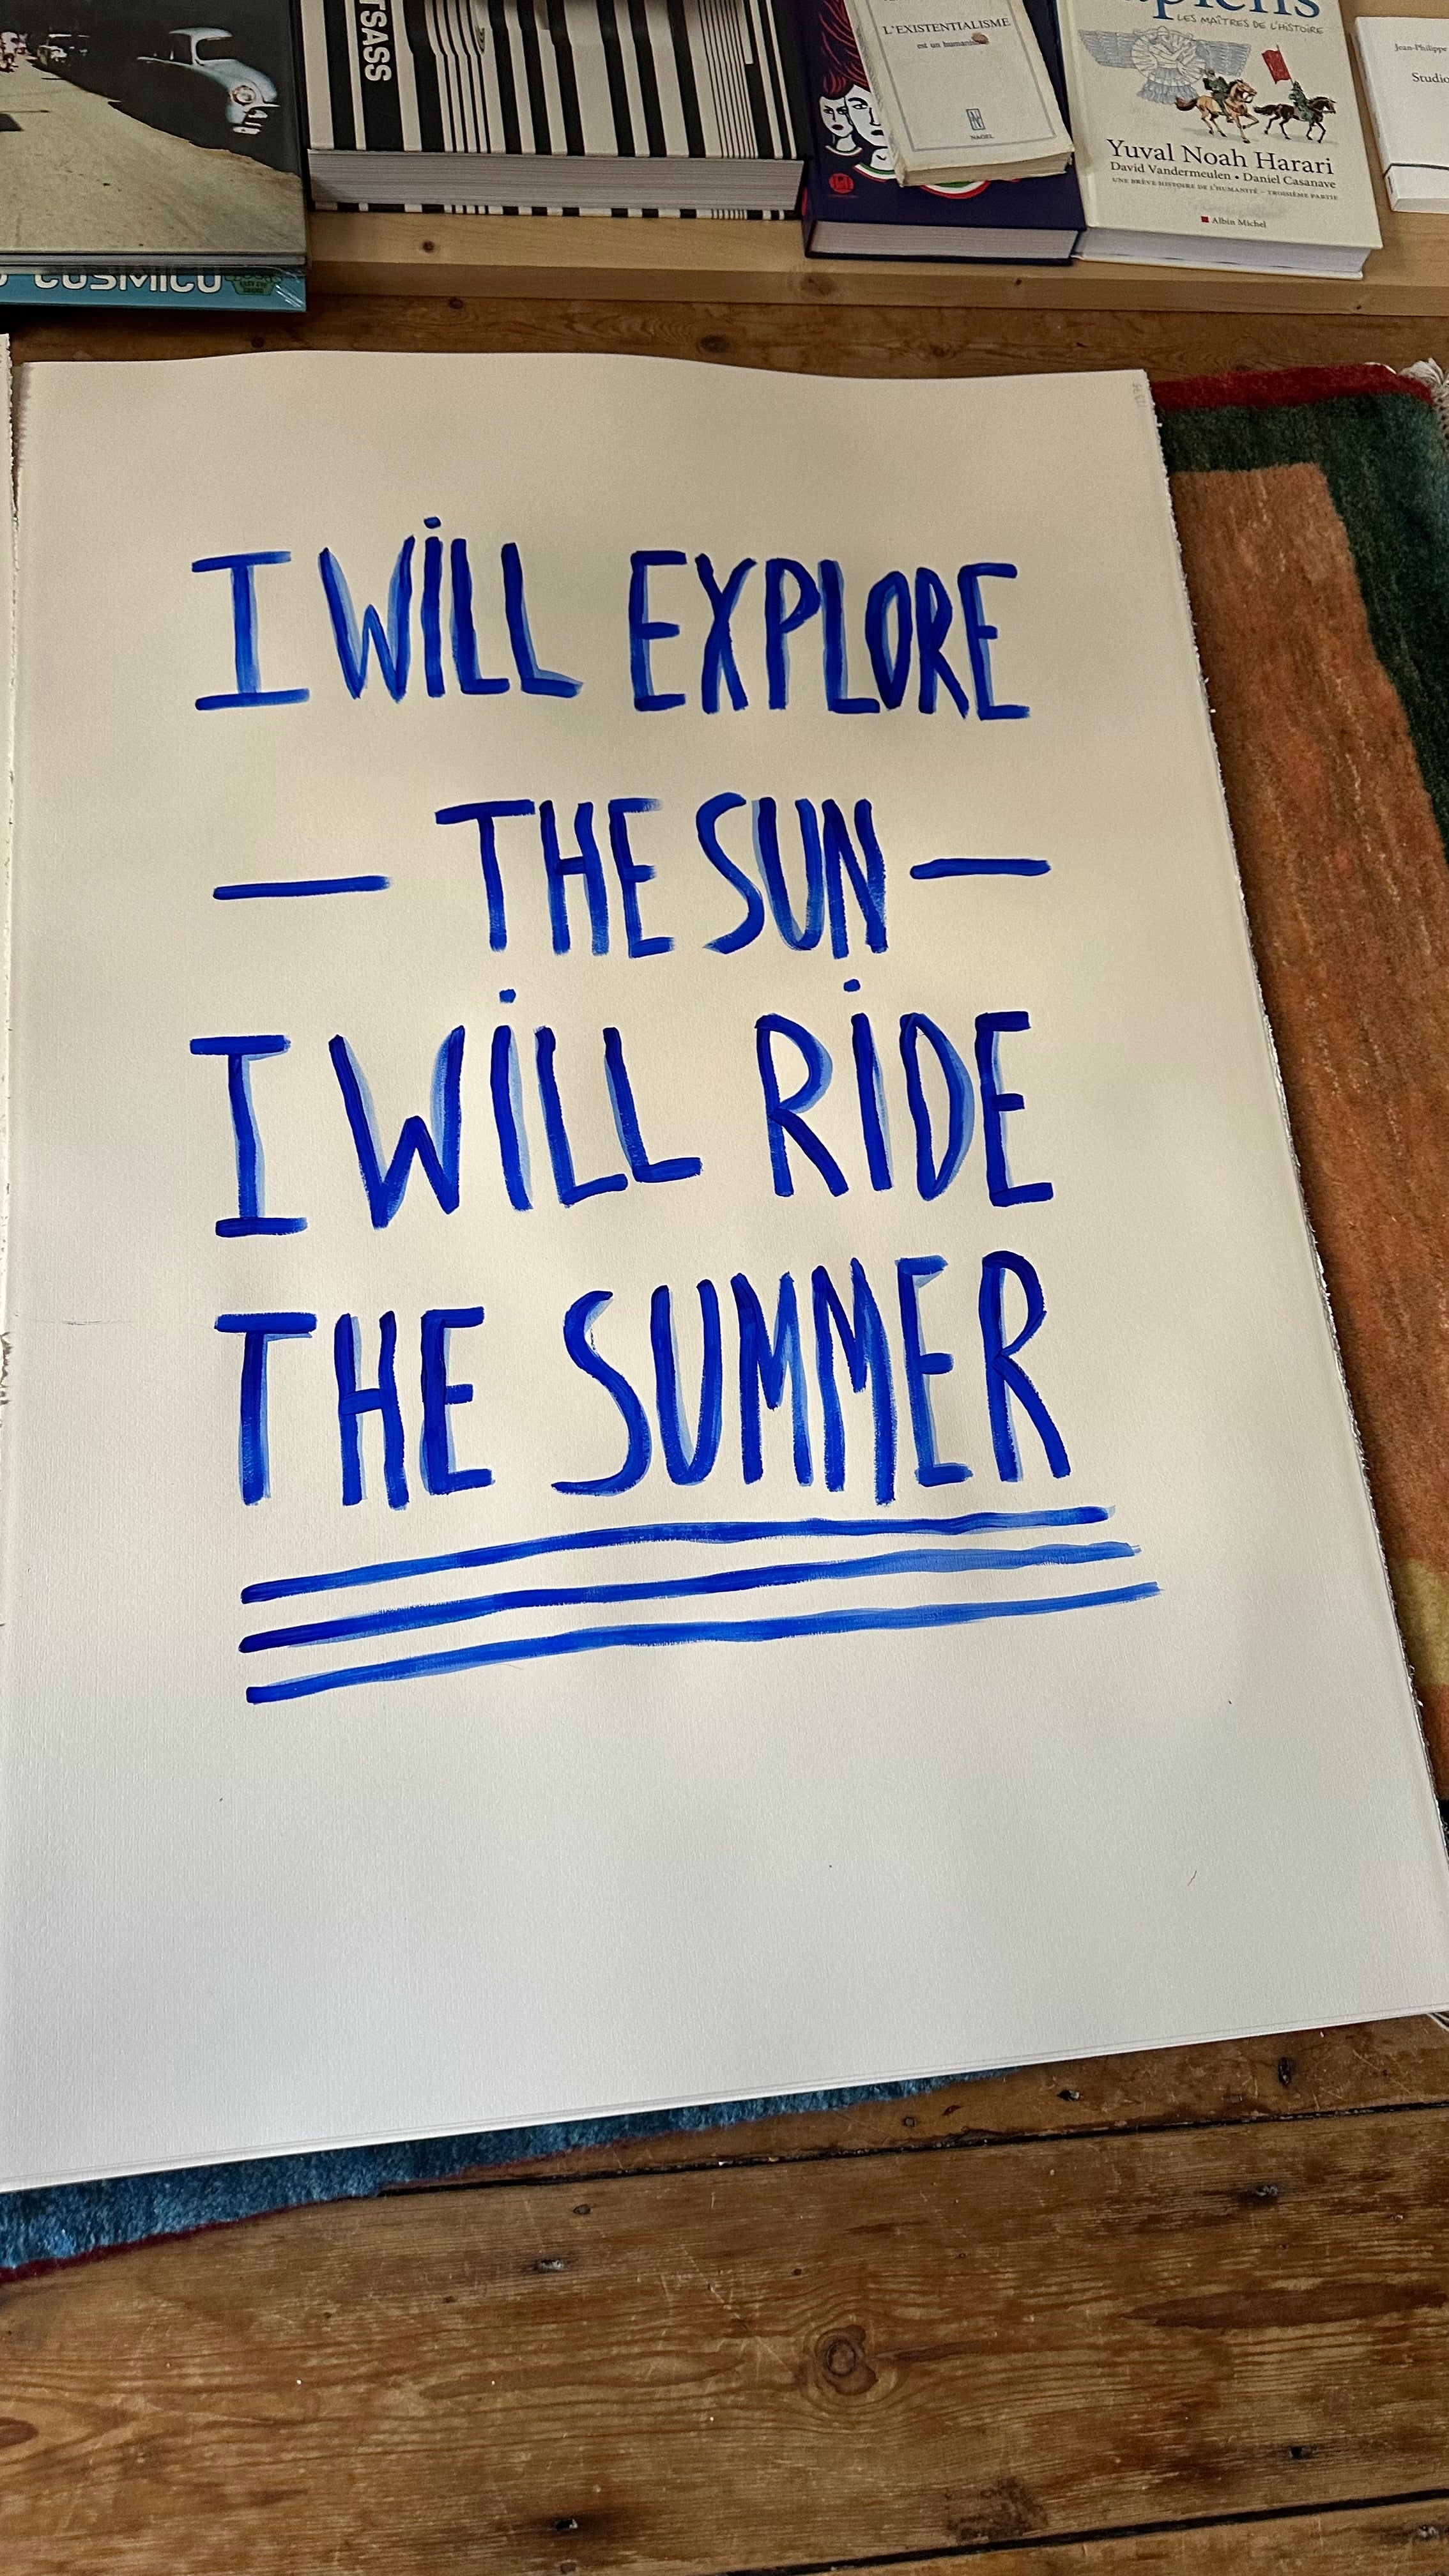 TSASS
L'EXISTENTIALISME
est un humanis
NAGEL
LES MAÎTRES DE L'HISTOIRE
Yuval Noah Harari
David Vandermeulen • Daniel Casanave
UNE BRÈVE HISTOIRE DE L'HUMANITÉ – TROISIÈME PARTIE
Albin Michel
Jean-Philippe
Studio
COSMICO
I WiLL EXPLORE
— THE SUN —
I WiLL RiDE
THE SUMMER